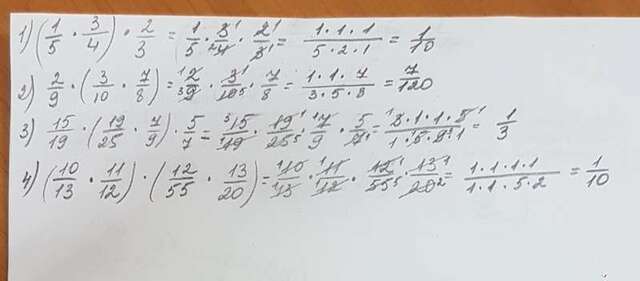 1) (1/5 · 3/4) · 2/3 = 1/5 · 3̶¹/₂4̶ · 2̶¹/3̶¹ = 1·1·1/5·2·1 = 1/10
2) 2/9 · (3/10 · 7/8) = ¹2̶/₃9̶ · 3̶¹/1̶0̶₅ · 7/8 = 1·1·7/3·5·8 = 7/120
3) 15/19 · (19/25 · 7/9) · 5/7 = ³1̶5̶/₁1̶9̶ · 1̶9̶¹/2̶5̶₅ · ¹7̶/9 · 5/7̶₁ = ¹3̶·1·1·5̶¹/1·5̶·9̶·1 = 1/3
4) (10/13 · 11/12) · (12/55 · 13/20) = ¹1̶0̶/₁1̶3̶ · ¹1̶1̶/₁1̶2̶ · 1̶2̶¹/5̶5̶₅ · 1̶3̶¹/2̶0̶₂ = 1·1·1·1/1·1·5·2 = 1/10